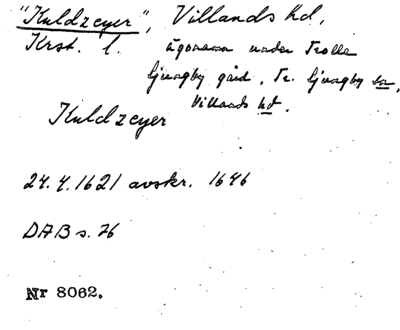 "Kuldzeyer", Villands hd,
Krst. l. ägonamn under Trolle
Ljungby gård, Tr. Ljungby sn,
Villands hd.
Kuldzeyer
24.4.1621 avskr. 1646
DAB s. 76
Nr 8062.